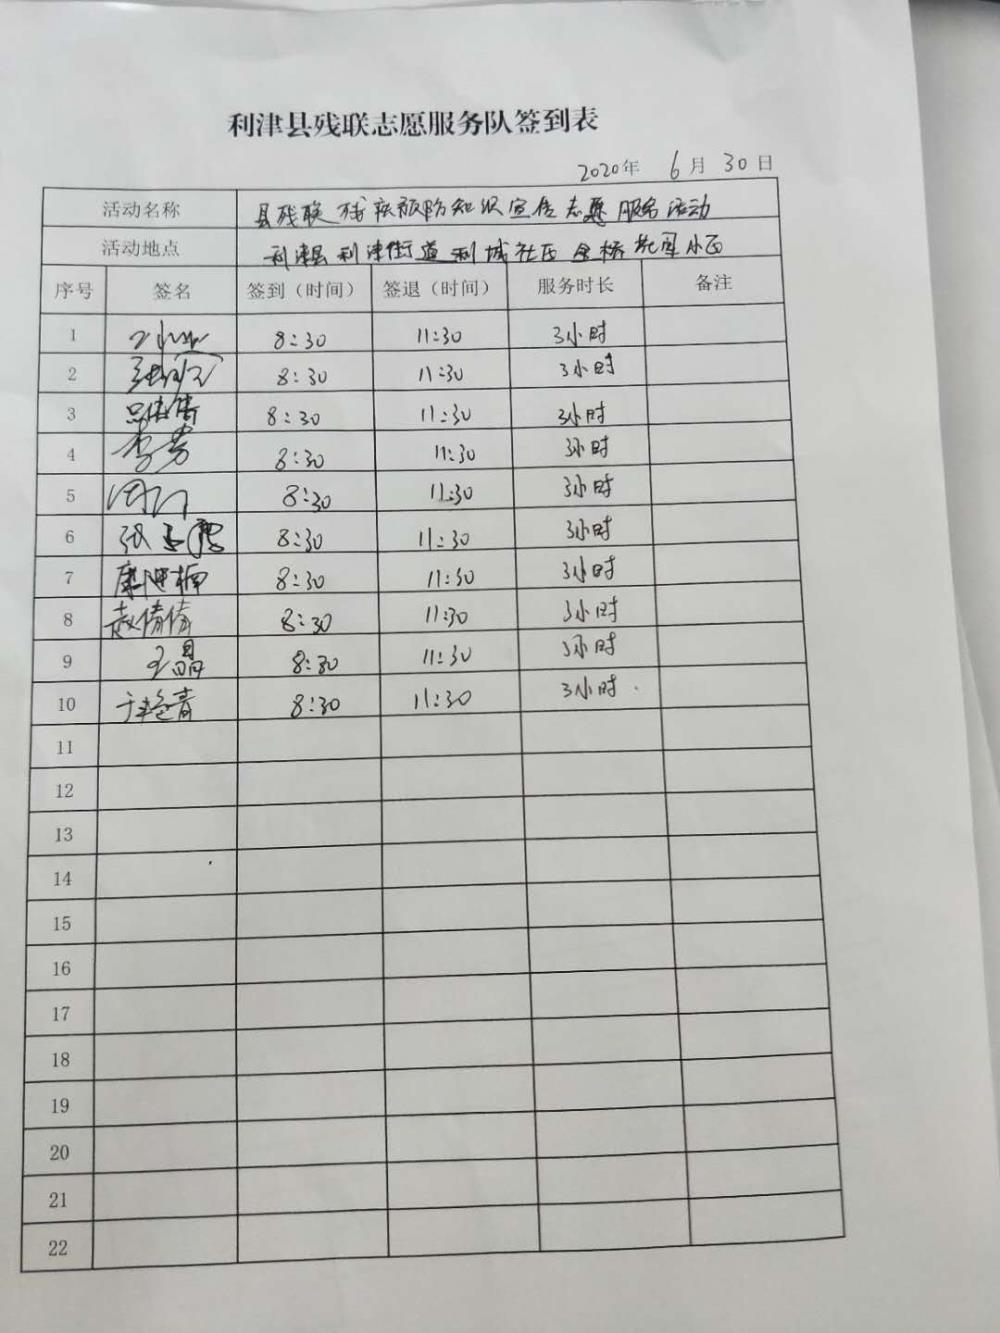 利津县残联志愿服务队签到表
2020年 6月 30日
活动名称 县残联残疾预防知识宣传志愿服务活动
活动地点 利津县利津街道利城社区金桥花园小区
序号 签名 签到（时间） 签退（时间） 服务时长 备注
1 8:30 11:30 3小时
2 8:30 11:30 3小时
3 8:30 11:30 3小时
4 李芳 8:30 11:30 3小时
5 8:30 11:30 3小时
6 8:30 11:30 3小时
7 8:30 11:30 3小时
8 赵倩倩 8:30 11:30 3小时
9 王晶 8:30 11:30 3小时
10 8:30 11:30 3小时
11
12
13
14
15
16
17
18
19
20
21
22